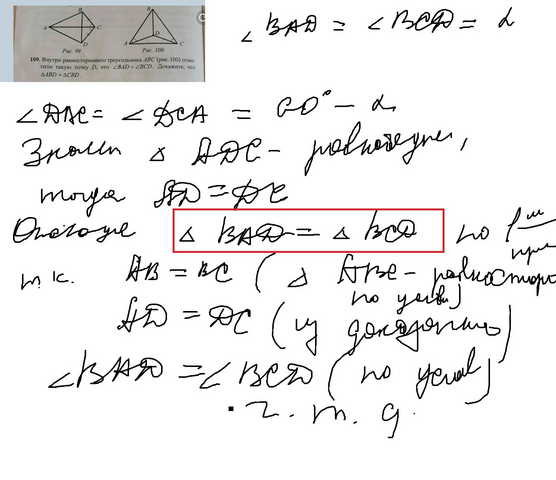 B
A
C
D
Рис. 99
B
A
D
C
Рис. 100
109. Внутри равностороннего треугольника ABC (рис. 100) отме-
тили такую точку D, что ∠BAD = ∠BCD. Докажите, что
△ABD = △CBD.
∠BAD = ∠BCD = α
∠DAC = ∠DCA = 60° − α
Значит △ ADC - равнобедрен,
тогда AD = DC
△ BAD = △ BCD по I ᵐ
т.к. AB = BC ( △ ABC - равносторон
по услов)
AD = DC (из доказанного)
∠BAD = ∠BCD (по услов)
ч. т. д.